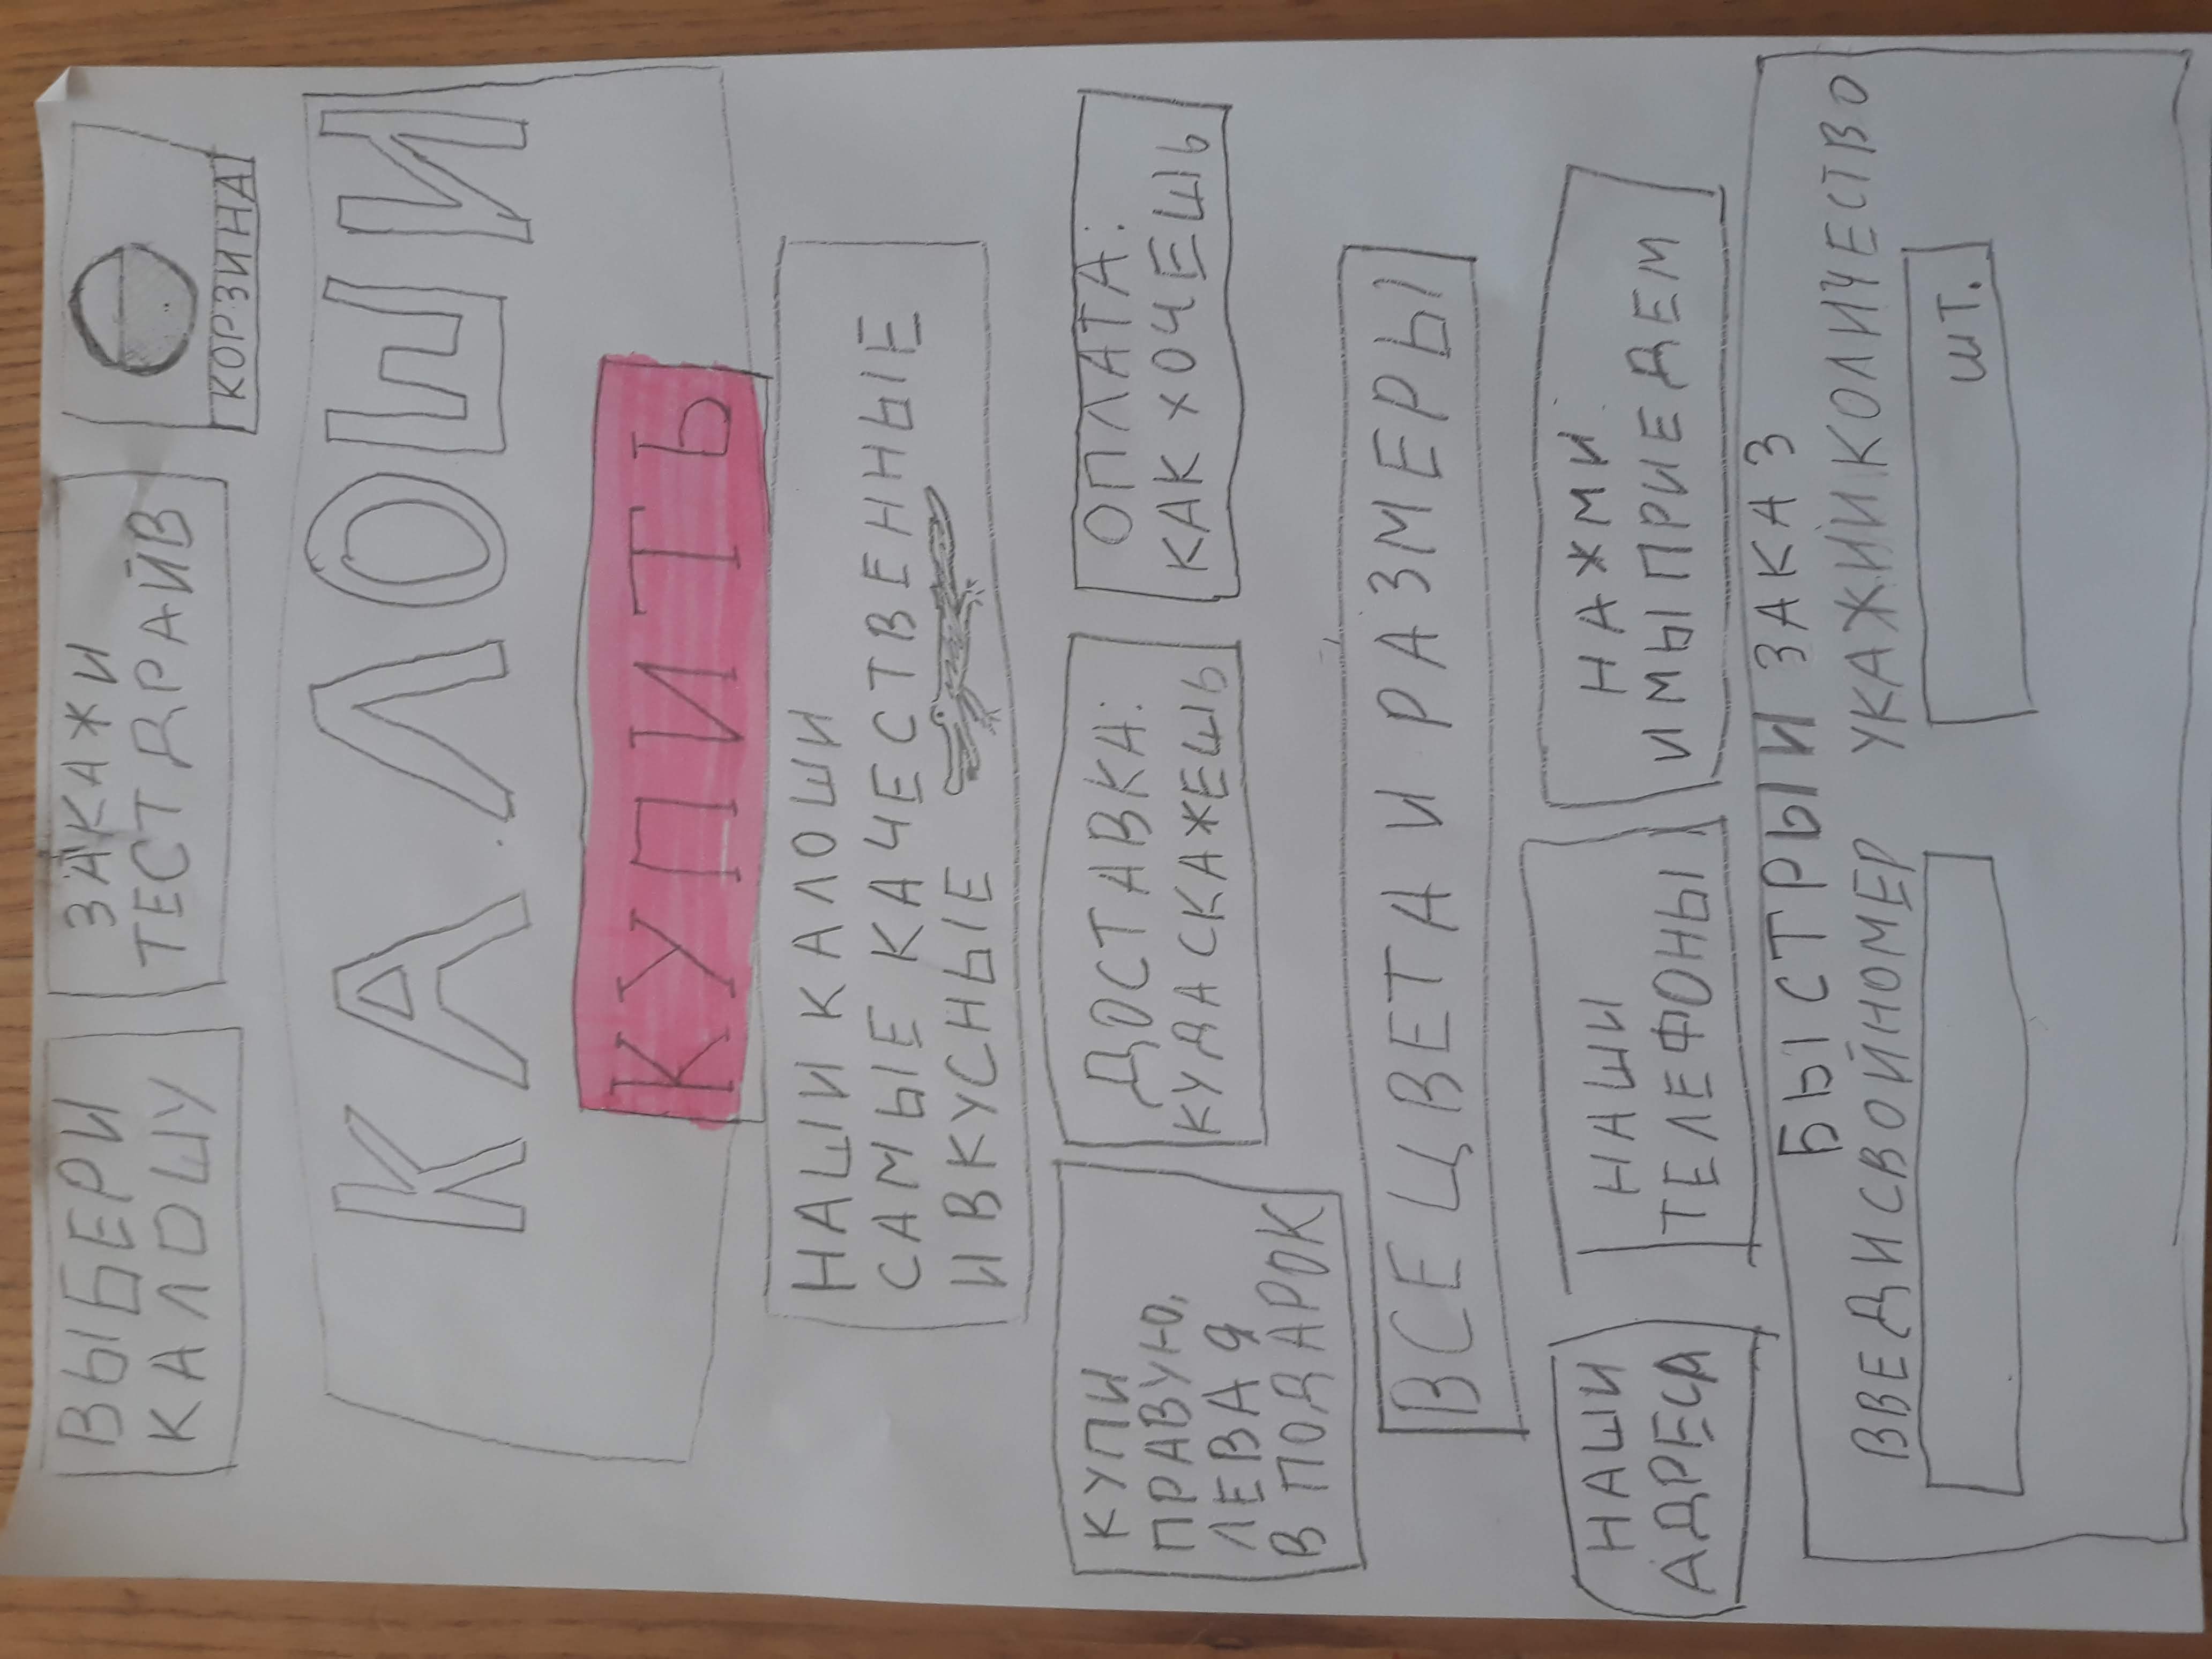 ВЫБЕРИ
КАЛОШУ
ЗАКАЖИ
ТЕСТ ДРАЙВ
КОРЗИНА
КАЛОШИ
КУПИТЬ
НАШИ КАЛОШИ
САМЫЕ КАЧЕСТВЕННЫЕ
И ВКУСНЫЕ
КУПИ
ПРАВУЮ,
ЛЕВАЯ
В ПОДАРОК
ДОСТАВКА:
КУДА СКАЖЕШЬ
ОПЛАТА:
КАК ХОЧЕШЬ
ВСЕ ЦВЕТА И РАЗМЕРЫ
НАШИ
АДРЕСА
НАШИ
ТЕЛЕФОНЫ
НАЖМИ
И МЫ ПРИЕДЕМ
БЫСТРЫИ ЗАКАЗ
ВВЕДИ СВОЙ НОМЕР
УКАЖИ КОЛИЧЕСТВО
ШТ.